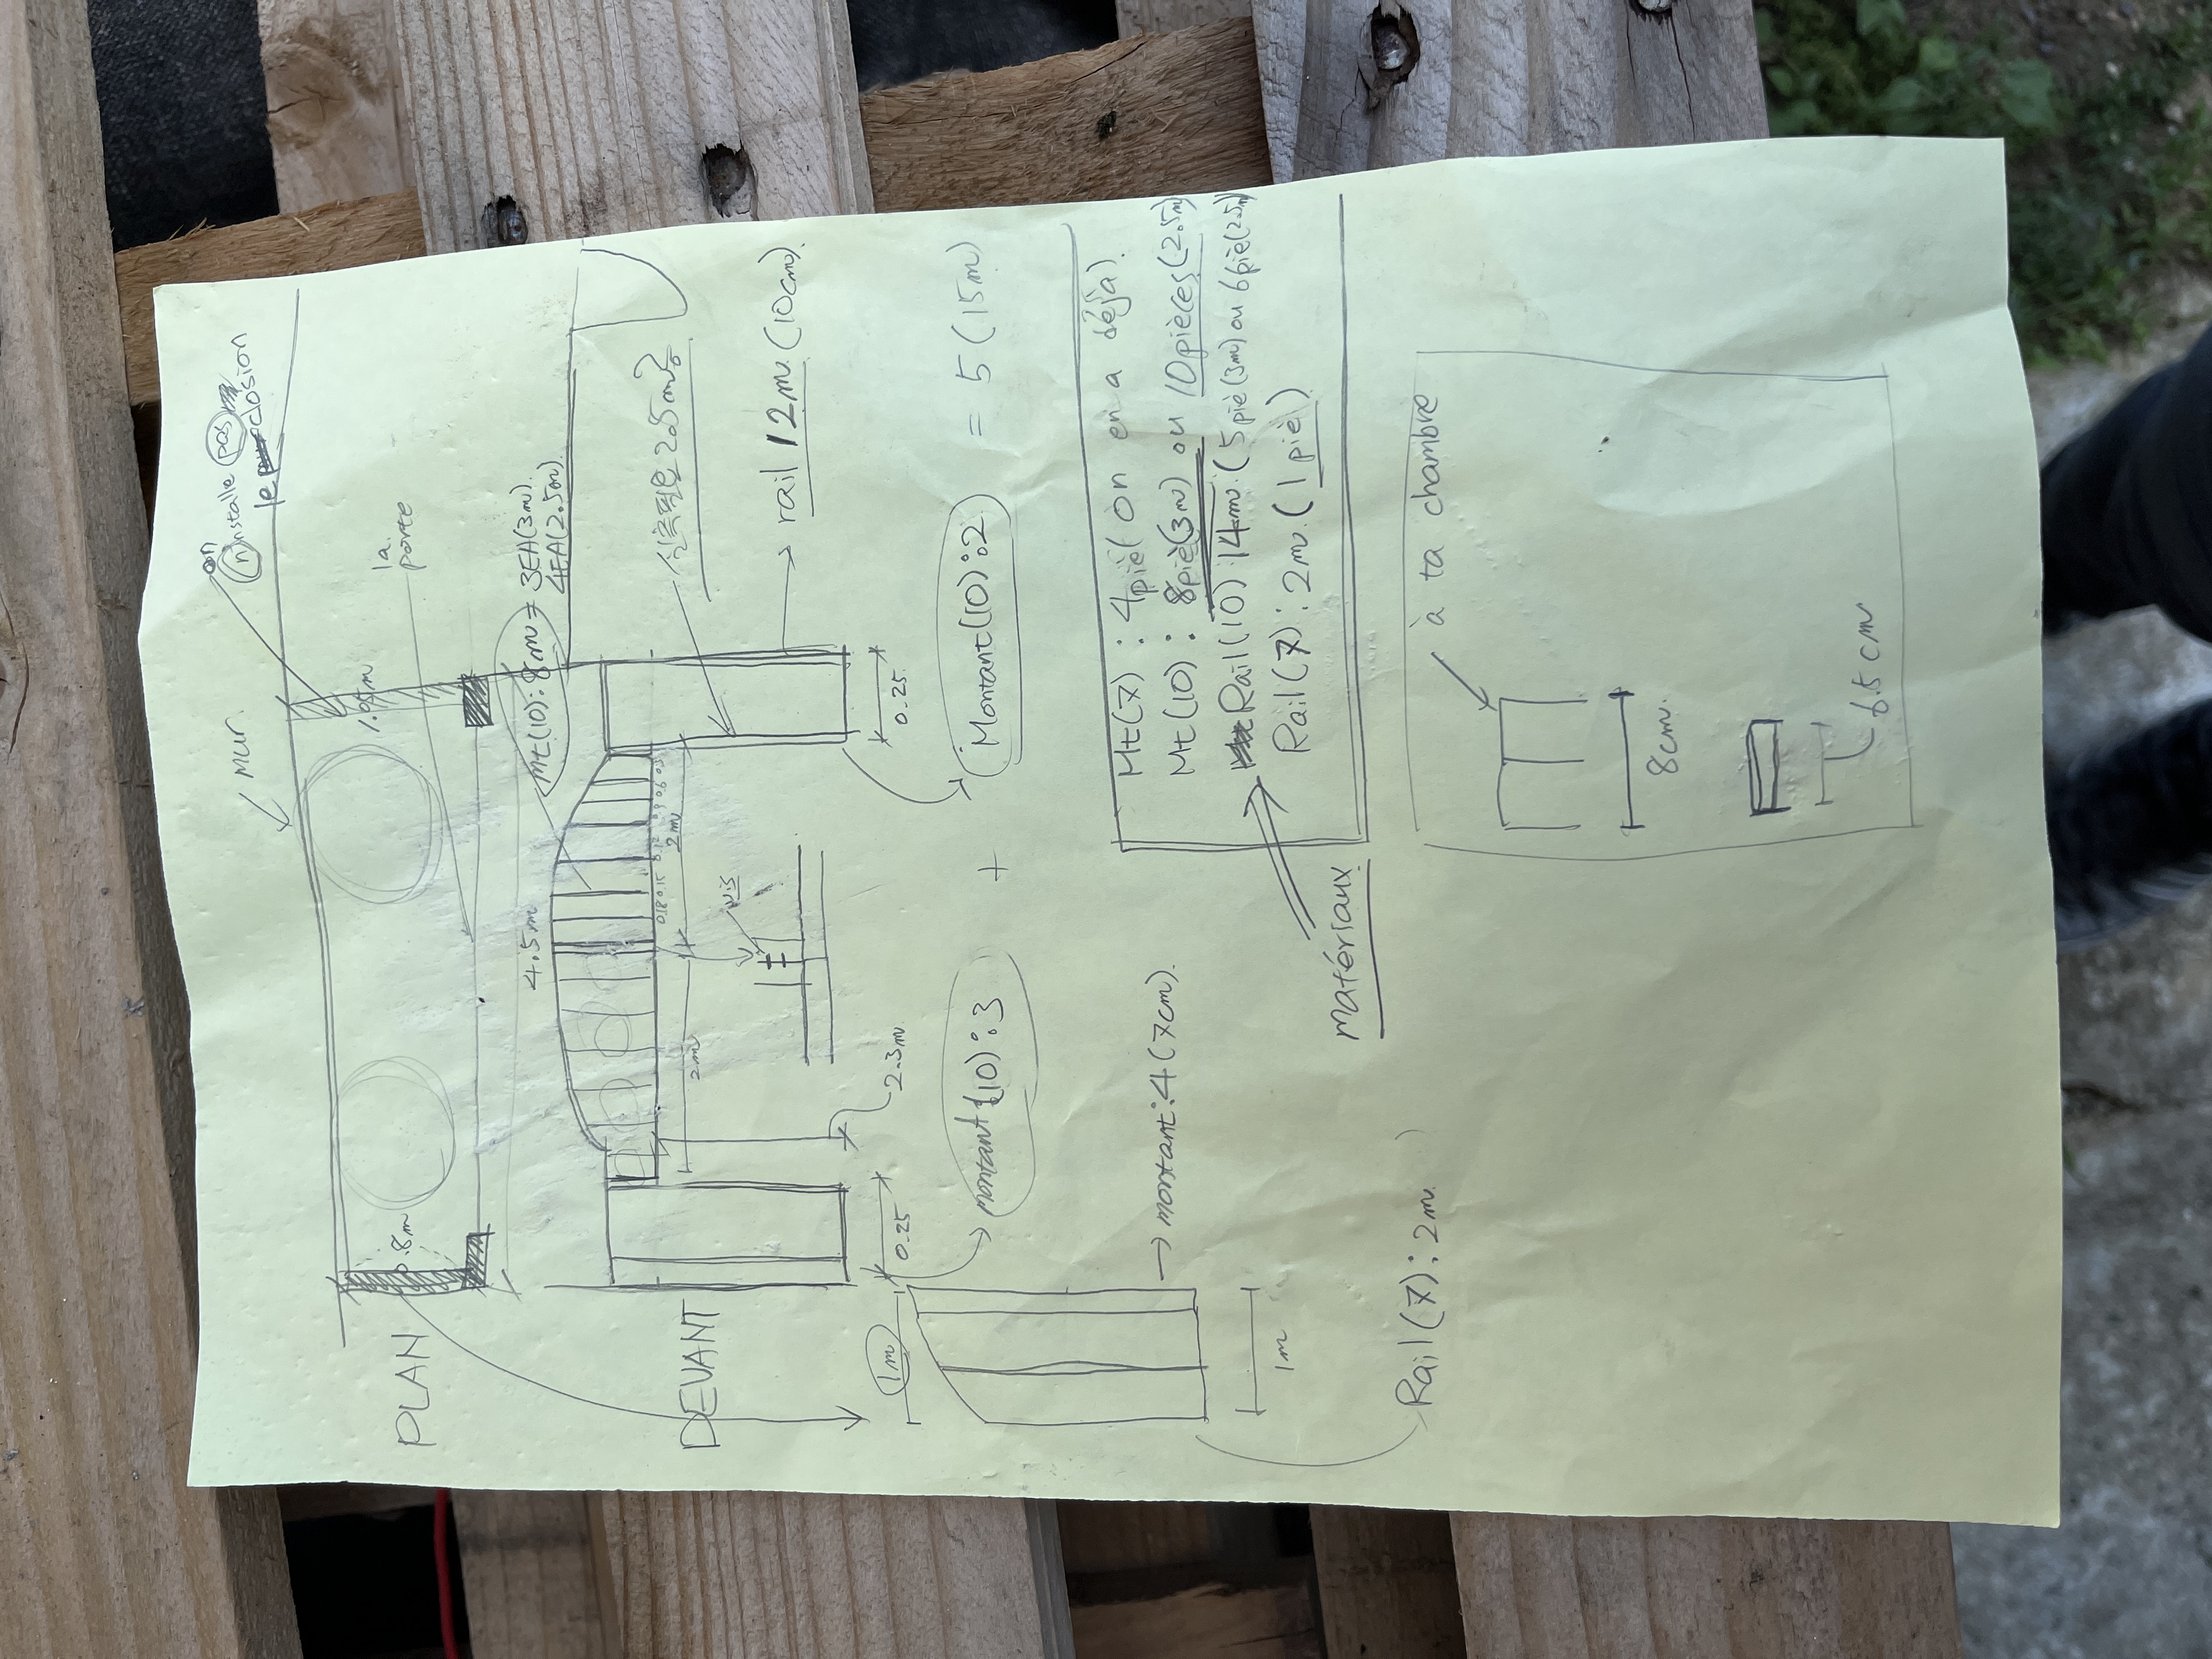 mur.
on
n installe pas
le closion
PLAN
0.8m
1.05m
la
porte
4.5m
Mt(10): 8m = 3EA(3m).
4EA(2.5m)
DEVANT
0.18 0.15 0.12 0.9 0.6 0.3
2m
2m
실측필요 2.5m
vis
rail 12m. (10cm).
1m
0.25
2.3m
0.25
montant (10):3
+
Montant(10):2
= 5 (15m)
montant:4 (7cm).
1m
Mt(7) : 4piè( on en a déjà)
Mt(10) : 8piè(3m) ou 10pièces(2.5m)
Rail(10) 14m. (5piè(3m) ou 6piè(2.5m)
Rail(7) : 2m. ( 1 piè )
matériaux
Rail(7): 2m.
à ta chambre
8cm.
6.5cm